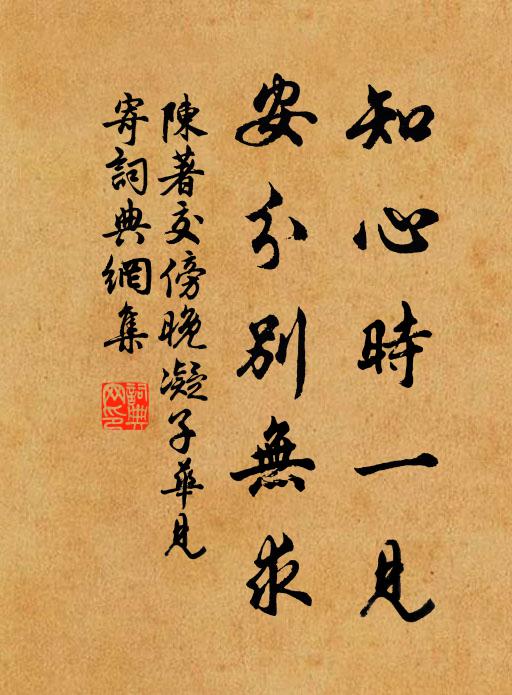 知心時一見
安分別無求
陳著交傍晚凝子華見
寄詞典網集
詞典網印